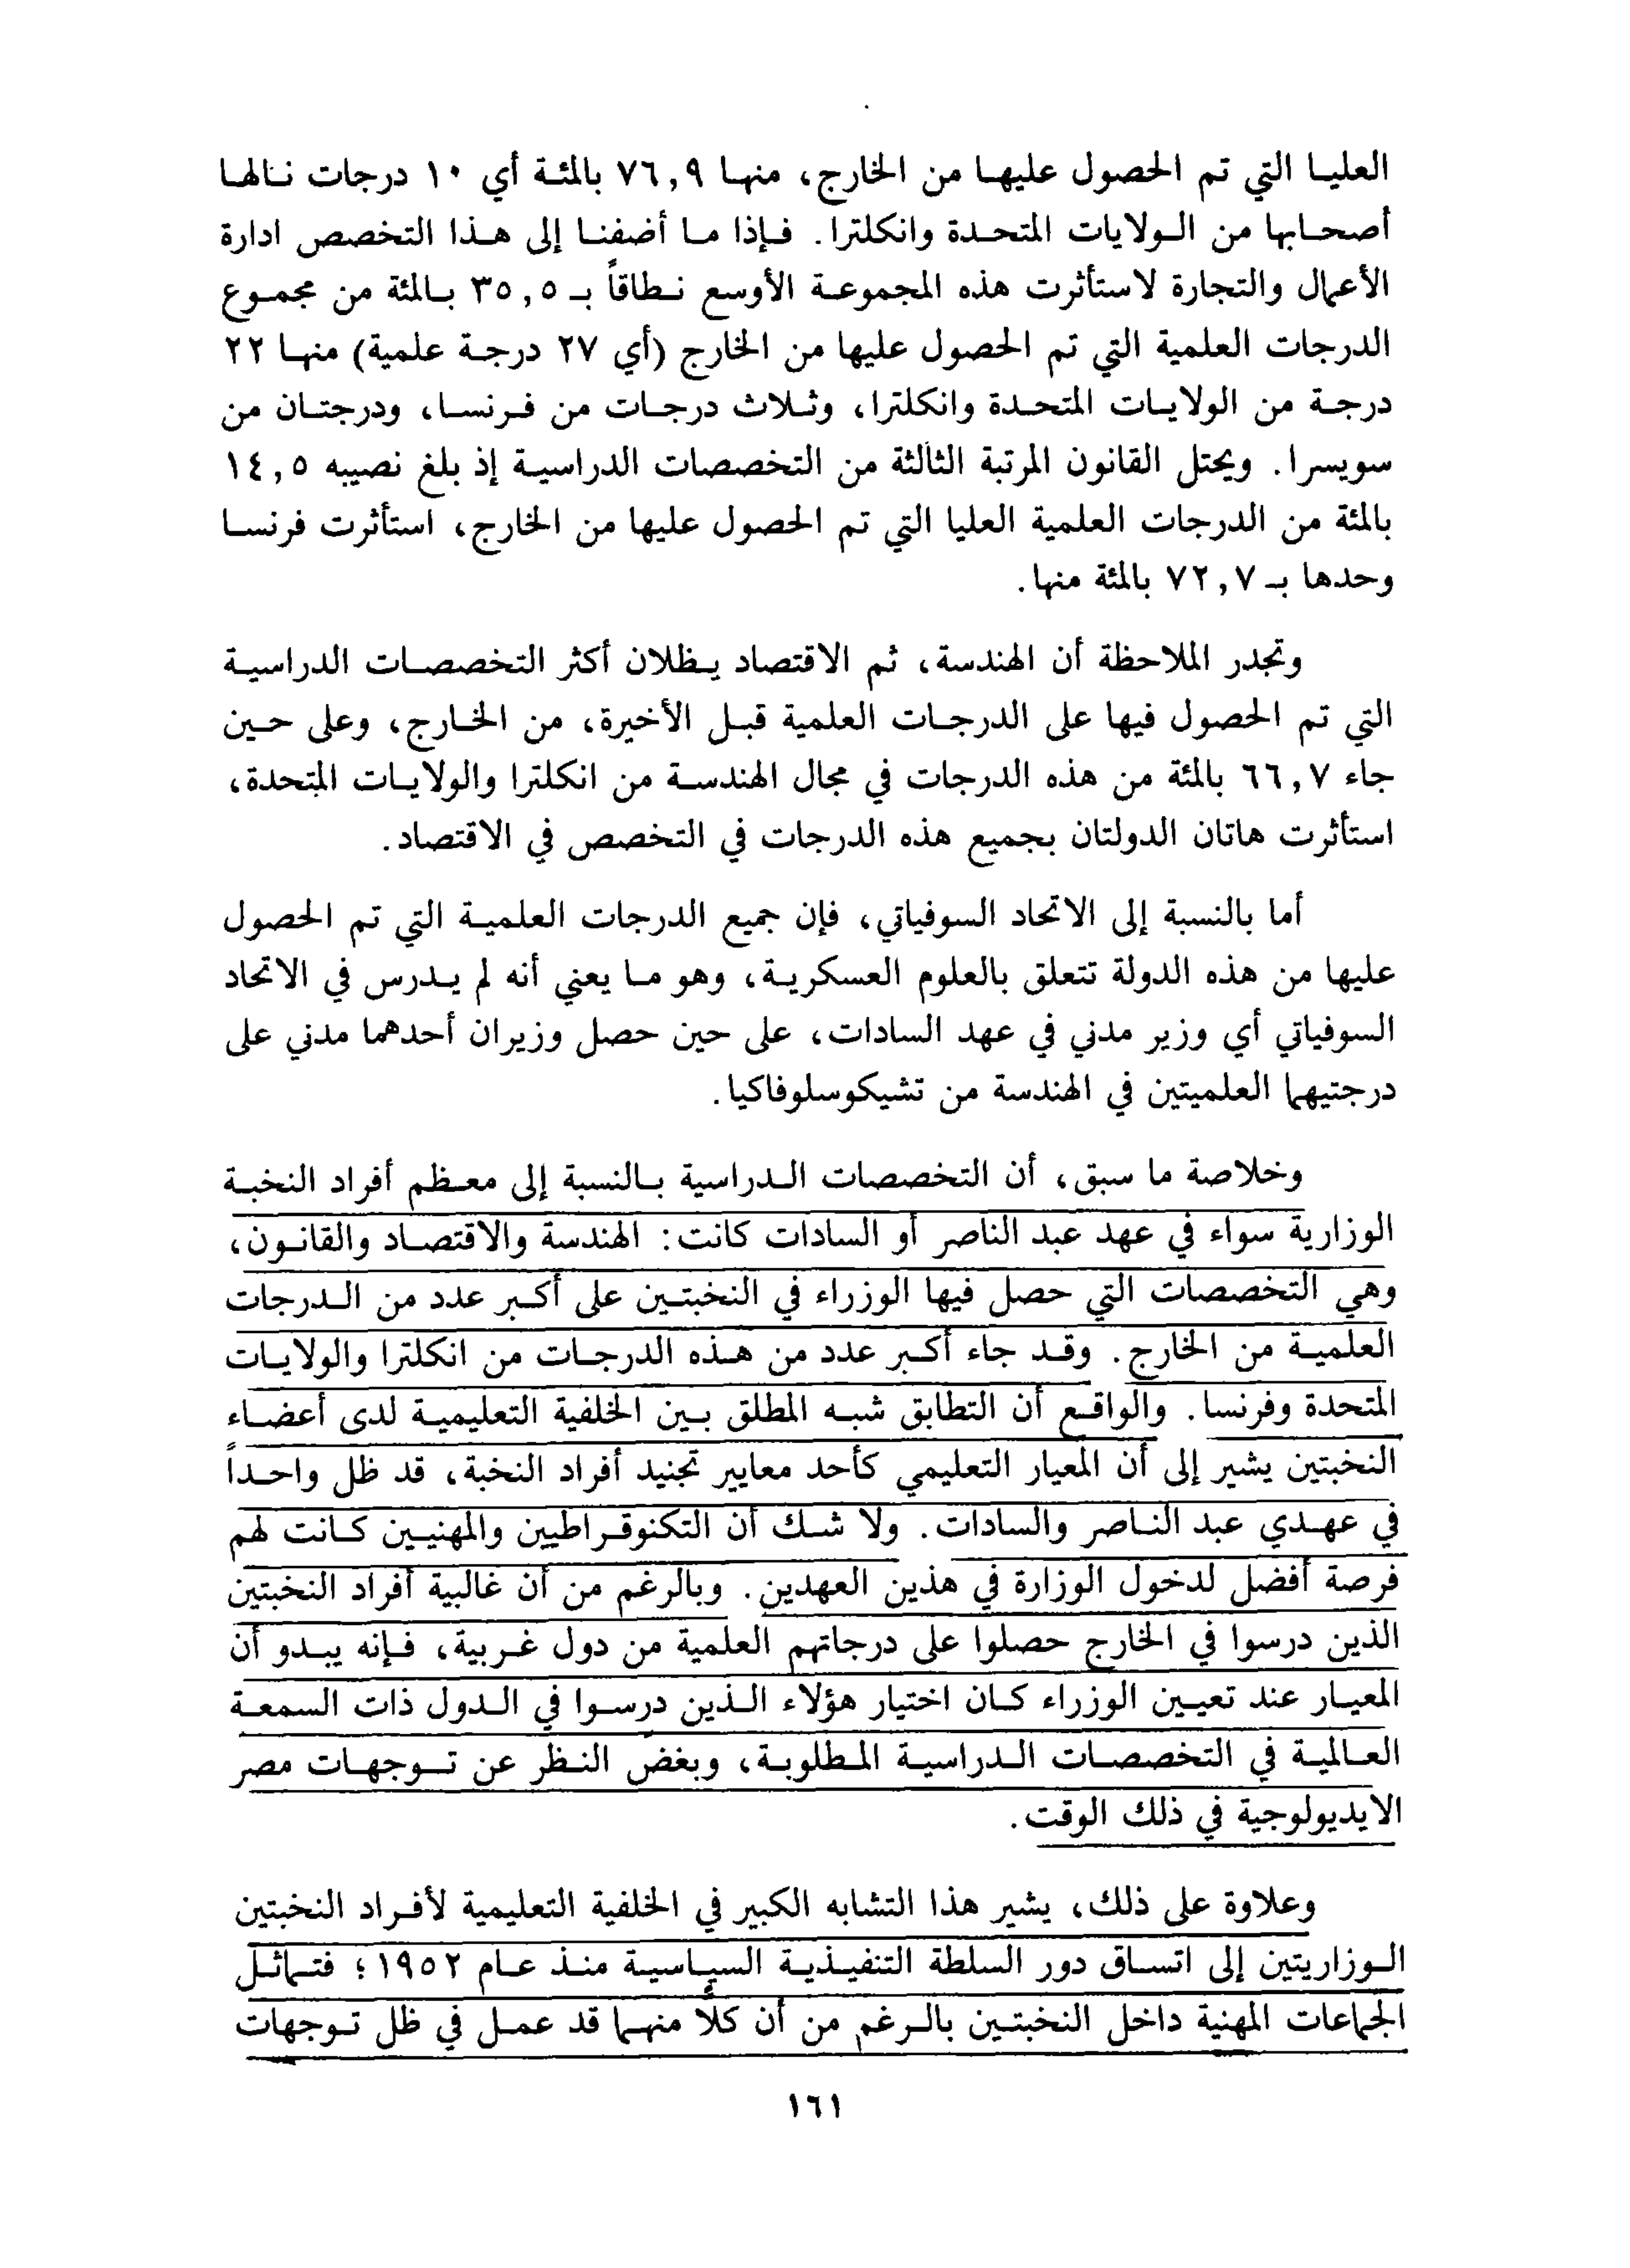 العليا التي تم الحصول عليها من الخارج، منها ٧٦,٩ بالمئة أي ١٠ درجات نالها
أصحابها من الولايات المتحدة وانكلترا. فإذا ما أضفنا إلى هذا التخصص ادارة
الأعمال والتجارة لاستأثرت هذه المجموعة الأوسع نطاقاً بـ ٣٥,٥ بالمئة من مجموع
الدرجات العلمية التي تم الحصول عليها من الخارج (أي ٢٧ درجة علمية) منها ٢٢
درجة من الولايات المتحدة وانكلترا، وثلاث درجات من فرنسا، ودرجتان من
سويسرا. ويحتل القانون المرتبة الثالثة من التخصصات الدراسية إذ بلغ نصيبه ١٤,٥
بالمئة من الدرجات العلمية العليا التي تم الحصول عليها من الخارج، استأثرت فرنسا
وحدها بـ ٧٢,٧ بالمئة منها.
وتجدر الملاحظة أن الهندسة، ثم الاقتصاد يظلان أكثر التخصصات الدراسية
التي تم الحصول فيها على الدرجات العلمية قبل الأخيرة، من الخارج، وعلى حين
جاء ٦٦,٧ بالمئة من هذه الدرجات في مجال الهندسة من انكلترا والولايات المتحدة،
استأثرت هاتان الدولتان بجميع هذه الدرجات في التخصص في الاقتصاد.
أما بالنسبة إلى الاتحاد السوفياتي، فإن جميع الدرجات العلمية التي تم الحصول
عليها من هذه الدولة تتعلق بالعلوم العسكرية، وهو ما يعني أنه لم يدرس في الاتحاد
السوفياتي أي وزير مدني في عهد السادات، على حين حصل وزيران أحدهما مدني على
درجتيهما العلميتين في الهندسة من تشيكوسلوفاكيا.
وخلاصة ما سبق، أن التخصصات الدراسية بالنسبة إلى معظم أفراد النخبة
الوزارية سواء في عهد عبد الناصر أو السادات كانت: الهندسة والاقتصاد والقانون،
وهي التخصصات التي حصل فيها الوزراء في النخبتين على أكبر عدد من الدرجات
العلمية من الخارج. وقد جاء أكبر عدد من هذه الدرجات من انكلترا والولايات
المتحدة وفرنسا. والواقع أن التطابق شبه المطلق بين الخلفية التعليمية لدى أعضاء
النخبتين يشير إلى أن المعيار التعليمي كأحد معايير تجنيد أفراد النخبة، قد ظل واحداً
في عهدي عبد الناصر والسادات. ولا شك أن التكنوقراطيين والمهنيين كانت لهم
فرصة أفضل لدخول الوزارة في هذين العهدين. وبالرغم من أن غالبية أفراد النخبتين
الذين درسوا في الخارج حصلوا على درجاتهم العلمية من دول غربية، فإنه يبدو أن
المعيار عند تعيين الوزراء كان اختيار هؤلاء الذين درسوا في الدول ذات السمعة
العالمية في التخصصات الدراسية المطلوبة، وبغض النظر عن توجهات مصر
الايديولوجية في ذلك الوقت.
وعلاوة على ذلك، يشير هذا التشابه الكبير في الخلفية التعليمية لأفراد النخبتين
الوزاريتين إلى اتساق دور السلطة التنفيذية السياسية منذ عام ١٩٥٢؛ فتماثل
الجماعات المهنية داخل النخبتين بالرغم من أن كلاً منهما قد عمل في ظل توجهات
١٦١